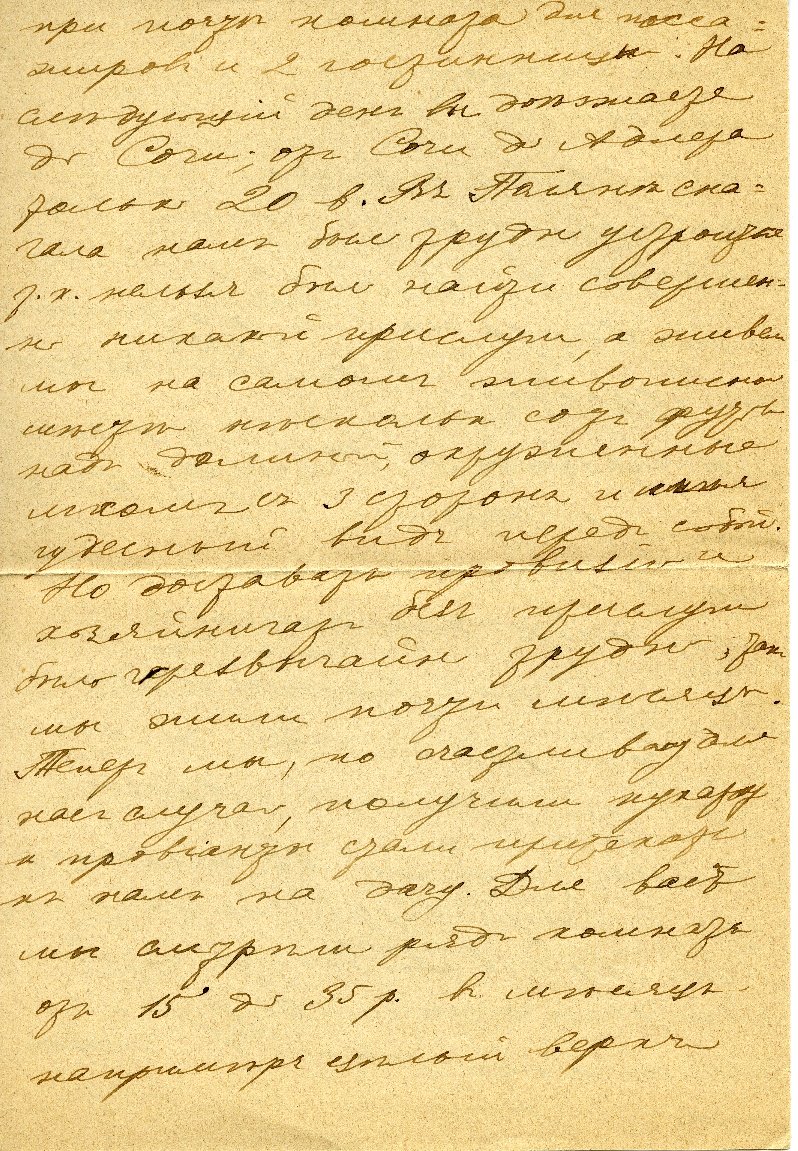 при почты комната для пасса=
жировъ и 2 гостинницы. На
слѣдующій день вы доѣзжаете
до Сочи, отъ Сочи до Адлера
только 20 в. Въ Полянѣ сна=
чала намъ было трудно устроиться
т. к. нельзя было найти совершен-
но никакой прислуги, а живемъ
мы на самомъ живописномъ
мѣстѣ нѣсколько сотъ футъ
надъ долиной, окруженные
лѣсомъ съ 3 сторонъ и имѣя
чудесный видъ передъ собой.
Но доставать провизію и
хозяйничать безъ прислуги
было чрезвычайно трудно, такъ
мы жили почти мѣсяцъ.
Теперь мы, по счастливому для
насъ случаю, получили кухарку
и провіанты стали притекать
къ намъ на дачу. Для васъ
мы смотрѣли рядъ комнатъ
отъ 15 до 35 р. въ мѣсяцъ.
напримѣръ цѣлый верхъ